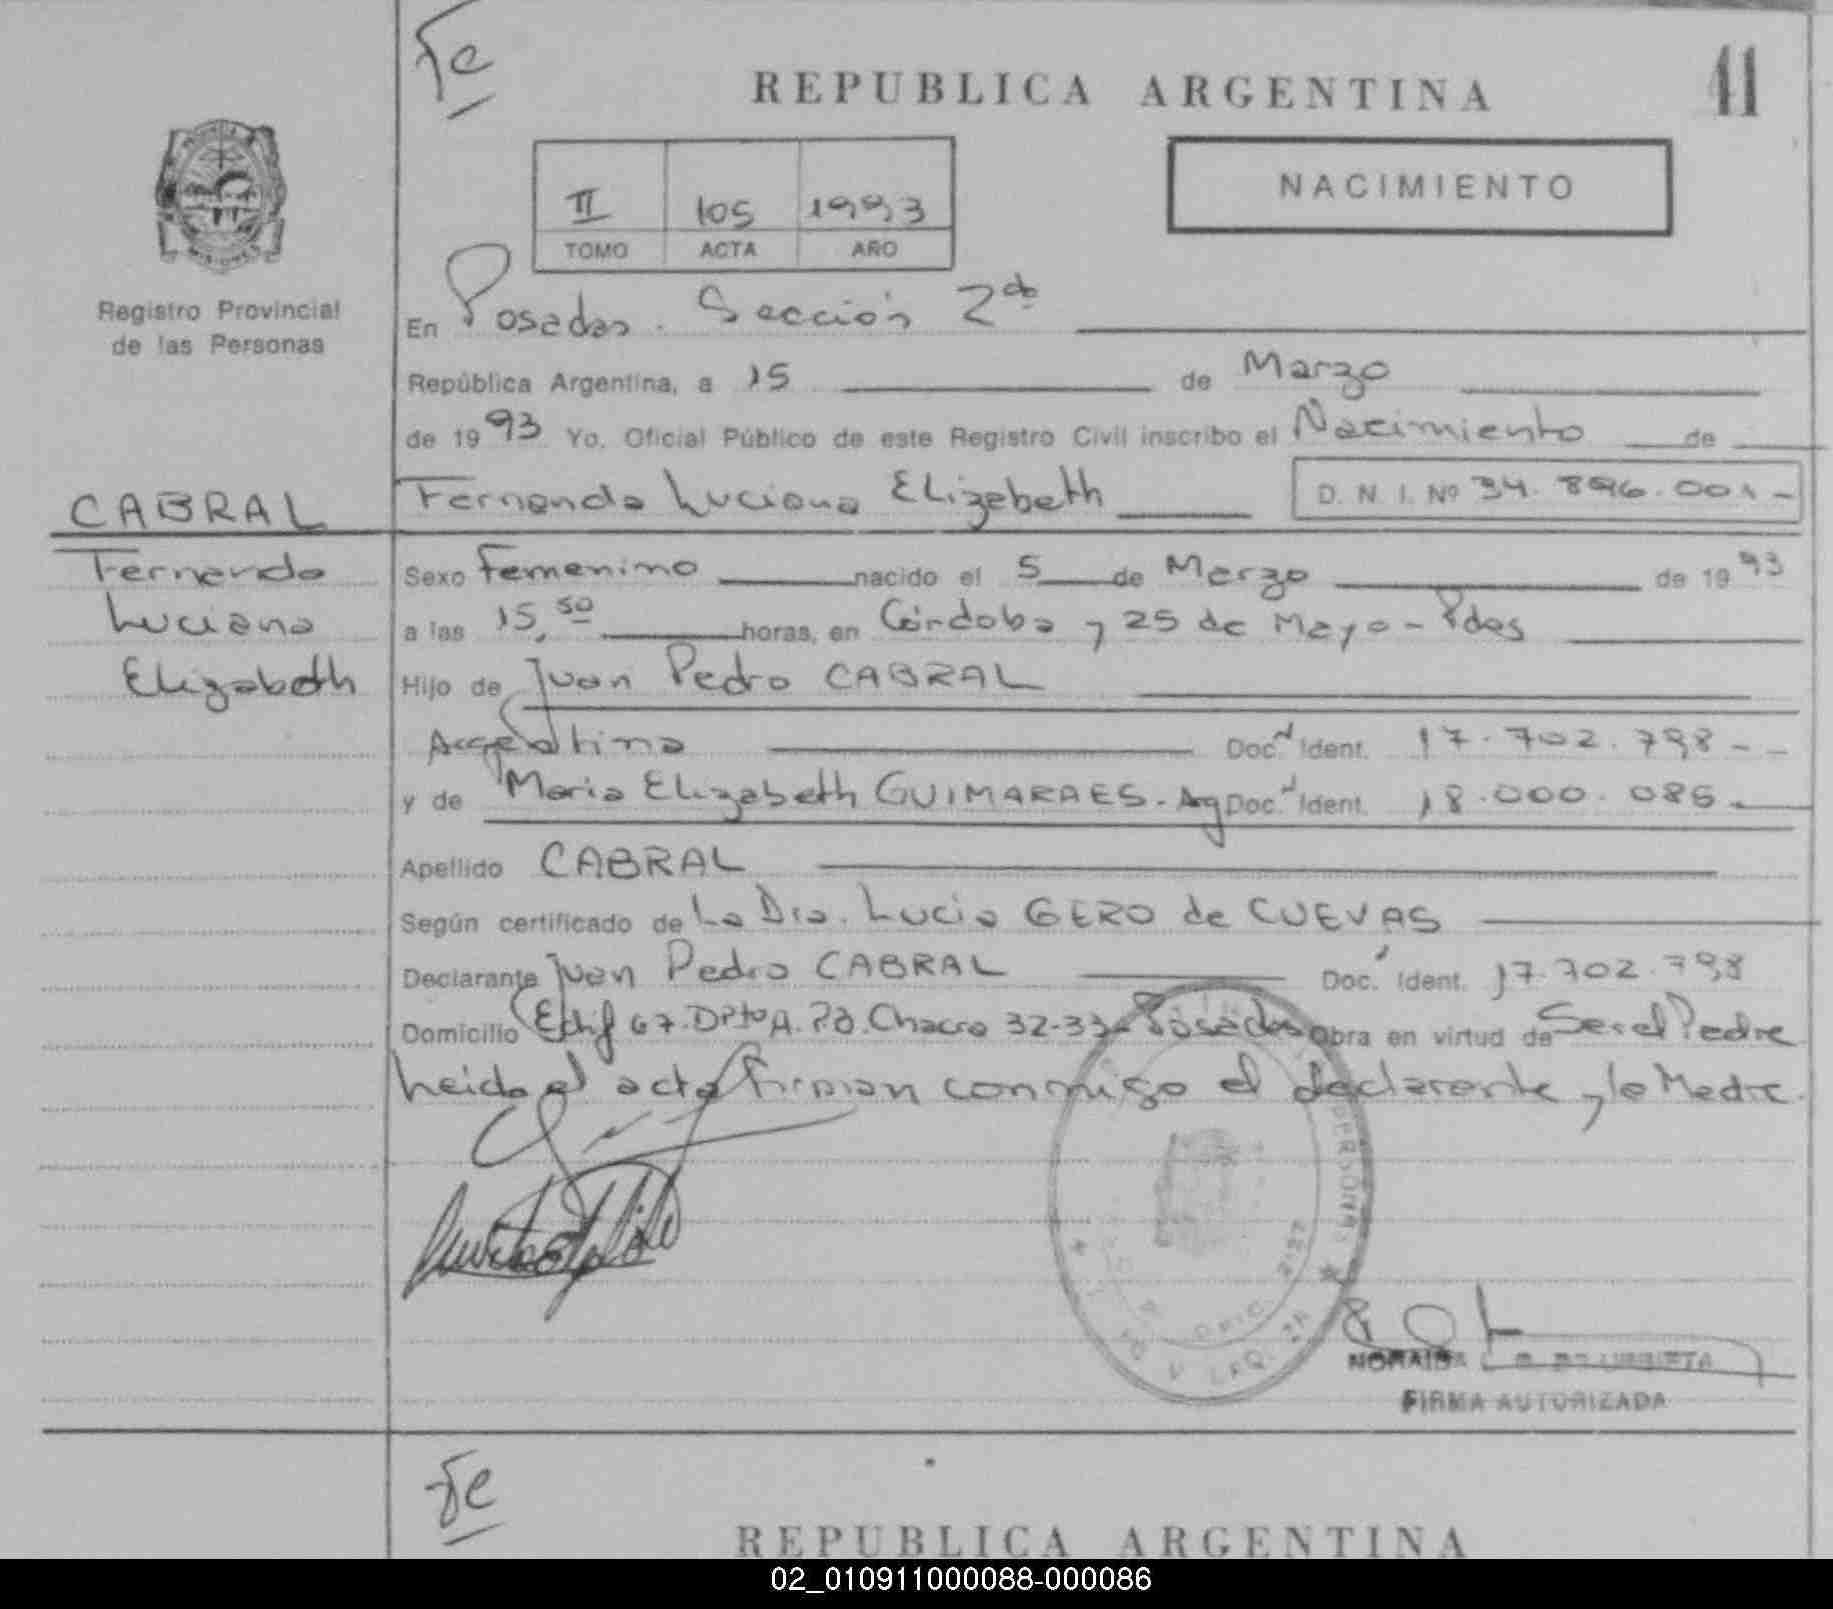 Fe
REPUBLICA ARGENTINA
41
NACIMIENTO
II 105 1993
TOMO ACTA AÑO
Registro Provincial
de las Personas
En Posadas. Sección 2da
República Argentina, a 15 de Marzo
de 1993 Yo, Oficial Público de este Registro Civil inscribo el Nacimiento de
CABRAL
Fernanda Luciana Elizabeth D. N. I. Nº 34.896.001-
Fernanda
Luciana
Elizabeth
Sexo Femenino nacido el 5 de Marzo de 1993
a las 15,50 horas, en Córdoba y 25 de Mayo - Pdas
Hijo de Juan Pedro CABRAL
Argentino Doc. Ident. 17.702.798--
y de Maria Elizabeth GUIMARAES. Arg Doc. Ident. 18.000.086-
Apellido CABRAL
Según certificado de La Dra. Lucia GERO de CUEVAS
Declarante Juan Pedro CABRAL Doc. Ident. 17.702.798
Domicilio Edif 67. Dpto A. Chacra 32-33- Posadas Obra en virtud de Ser el Padre
Leida el acta firman conmigo el declarante y la Madre.
PERSONAS
FIRMA AUTORIZADA
Fe
REPUBLICA ARGENTINA
02_010911000088-000086